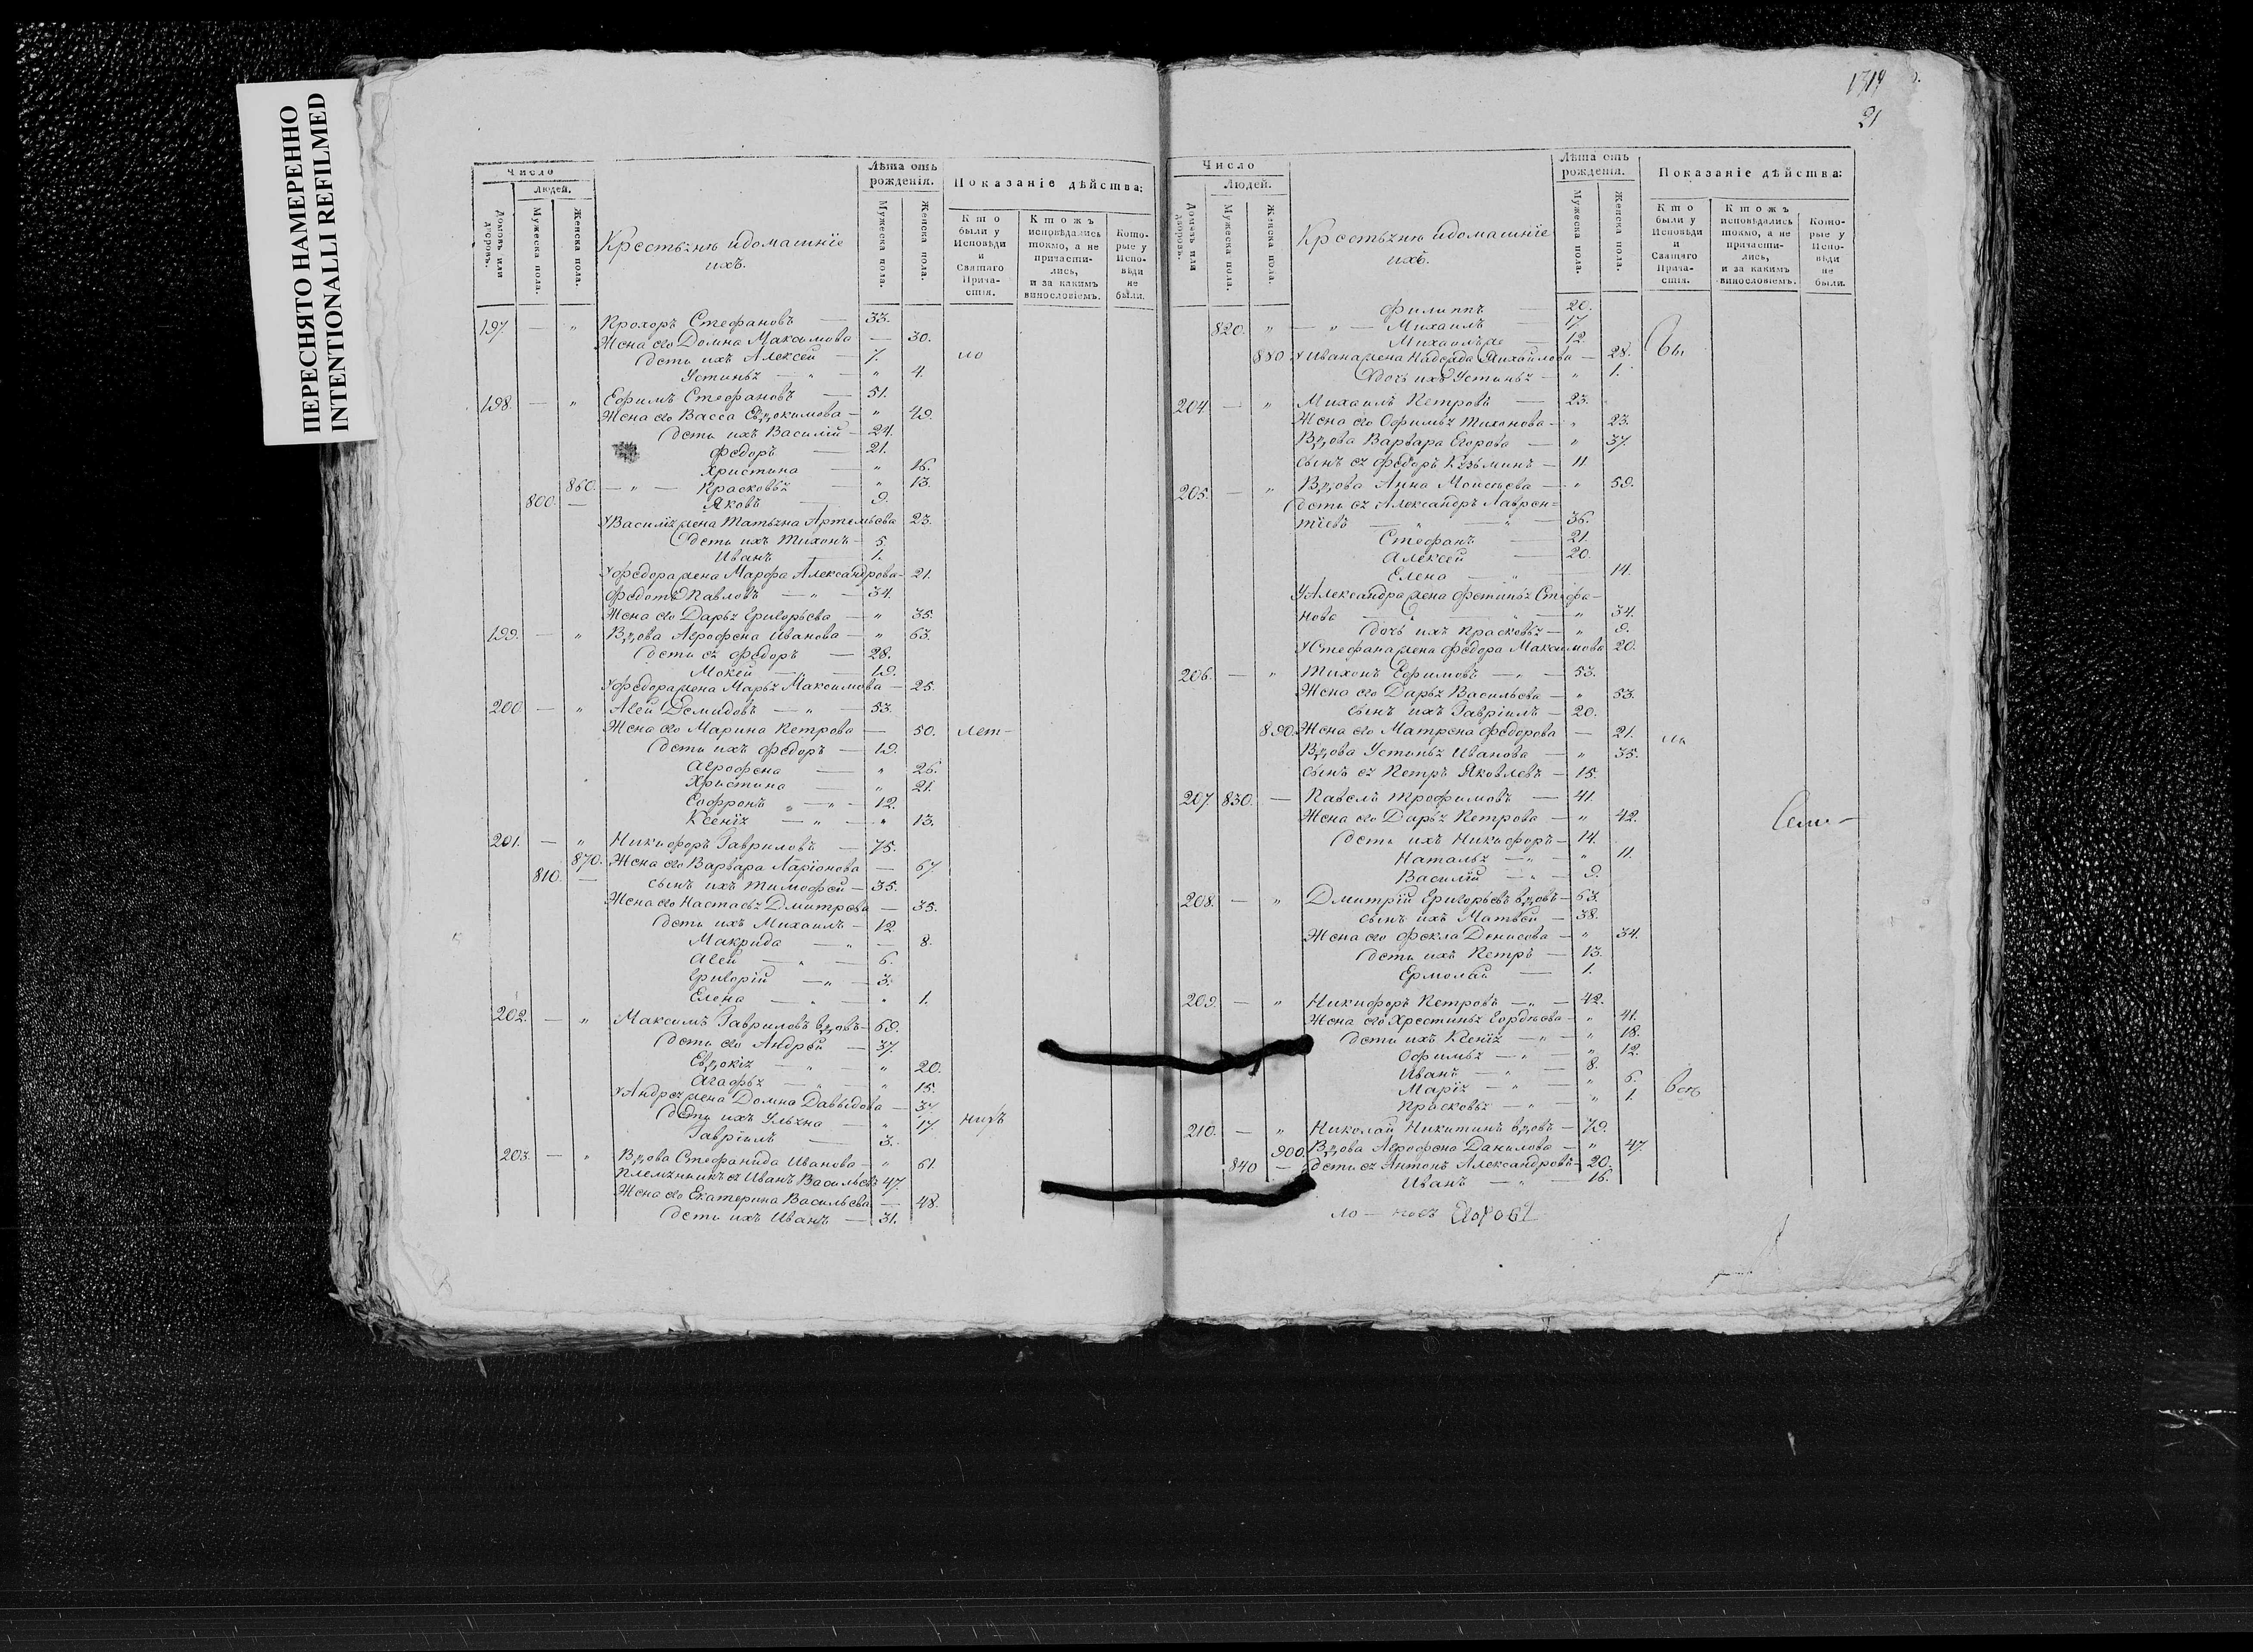 ПЕРЕСНЯТО НАМЕРЕННО
INTENTIONALLI REFILMED
Число
Людей.
Домовъ или дворовъ.
Мужеска пола.
Женска пола.
Крестьянѣ идомашнїе
ихъ.
Лѣта отъ
рожденія.
Мужеска пола.
Женска пола.
Показаніе дѣйства:
Кто были у Исповѣди и Святаго Причастія.
Ктожъ исповѣдались токмо, а не причастились, и за какимъ винословіемъ.
Которые у Исповѣди не были.
197. — „ Прохоръ Стефановъ — 33.
Жена его Домна Максимова — 30.
дети ихъ Алексей — 7. ло
Устинья — „ — „ 4.
198. — „ Ефимъ Стефановъ — 51.
Жена его Васса Евдокимова — „ 49.
дети ихъ Василїй — 24.
Федоръ — 21.
Христина — „ 16.
860. — „ — Прасковья — „ 13.
800. — Яковъ — 9.
уВасилїя жена Татьяна Артемьева 23.
дети ихъ Тихонъ — 5.
Иванъ — 1.
уФедора жена Марфа Александрова — 21.
Федотъ Павловъ — „ — 34.
Жена его Дарья Григорьева — „ 35.
199. — „ Вдова Агрофена Иванова — „ 63.
дети ея Федоръ — 28.
Мокей — „ — 19.
уФедора жена Марья Максимова — 25.
200. — „ Авей Демидовъ — „ — 53.
Жена его Марина Петрова — 50. лет-
дети ихъ Федоръ — 19.
Агрофена — „ 26.
Христина — „ 21.
Софронъ „ — „ — 12.
Ксенїя — „ — „ 13.
201. — „ Никифоръ Гавриловъ — 75.
870. Жена его Варвара Ларїонова — 67.
810. — сынъ ихъ Тимофей — 35.
Жена его Настасья Дмитрева — 35.
дети ихъ Михаилъ — 12.
Макрида — „ — 8.
Авей — „ — 6.
Григорїй — „ — 3.
Елена — „ — „ 1.
202. — „ Максимъ Гавриловъ вдовъ — 69.
дети его Андрей — 37.
Евдокїя — „ — „ 20.
Агафья — „ — „ 15.
уАндрея жена Домна Давыдова — 37.
дети ихъ Ульяна — „ 17. нихъ
Гаврїилъ — 3.
203. — „ Вдова Стефанида Иванова — „ 61.
Племянникъ ея Иванъ Васильевъ 47
Жена его Екатерина Васильева — 48.
дети ихъ Иванъ — 31.
1319
21
Число
Людей.
Домовъ или дворовъ.
Мужеска пола.
Женска пола.
Крестьянѣ идомашнїе
ихъ.
Лѣта отъ
рожденія.
Мужеска пола.
Женска пола.
Показаніе дѣйства:
Кто были у Исповѣди и Святаго Причастія.
Ктожъ исповѣдались токмо, а не причастились, и за какимъ винословіемъ.
Которые у Исповѣди не были.
Филиппъ — 20.
820. „ — „ — Михаилъ — 17.
Михаилъ же — 12.
880 уИвана жена Надежда Михайлова — 28. бы
дочь ихъ Устинья — „ 1.
204. — „ Михаилъ Петровъ — 23.
Жена его Офимья Тихонова — „ 23.
Вдова Варвара Егорова — „ 37.
сынъ ея Федоръ Кузьминъ — 11.
205. — „ Вдова Анна Моисеева — „ 59.
дети ея Александръ Лаврен=
тїевъ — „ — „ — 36.
Стефанъ — 21.
Алексей — 20.
Елена — „ — 14.
уАлександра жена Фетинья Стефа-
нова — „ — „ — „ 34.
дочь ихъ Прасковья — „ 9.
уСтефана жена Федора Максимова 20.
206. — „ Тихонъ Ефимовъ — „ — 53.
Жена его Дарья Васильева — „ 53.
сынъ ихъ Гаврїилъ — 20.
890. Жена его Матрена Федорова — 21.
Вдова Устинья Иванова — „ 35.
сынъ ея Петръ Яковлевъ — 15.
207. 830. — Павелъ Трофимовъ — 41.
Жена его Дарья Петрова — „ 42.
дети ихъ Никифоръ — 14.
Наталья — „ — „ 11.
Василїй — „ — 9.
208. — „ Дмитрїй Григорьевъ вдовъ — 63.
сынъ ихъ Матвей — 38.
Жена его Фекла Денисова — „ 34.
дети ихъ Петръ — 13.
Ермолай — 1.
209. — „ Никифоръ Петровъ — „ — 42.
Жена его Хрестинья Гордѣева — „ 41.
дети ихъ Ксенїя — „ — „ 18.
Офимья — „ — „ 12.
Иванъ — „ — 8.
Марїя — „ — „ 6.
Прасковья — „ — „ 1.
210. — „ Николай Никитинъ вдовъ — 79.
900. Вдова Агрофена Данилова — „ 47.
840 — дети ея Антонъ Александровъ — 20.
Иванъ — „ — 16.